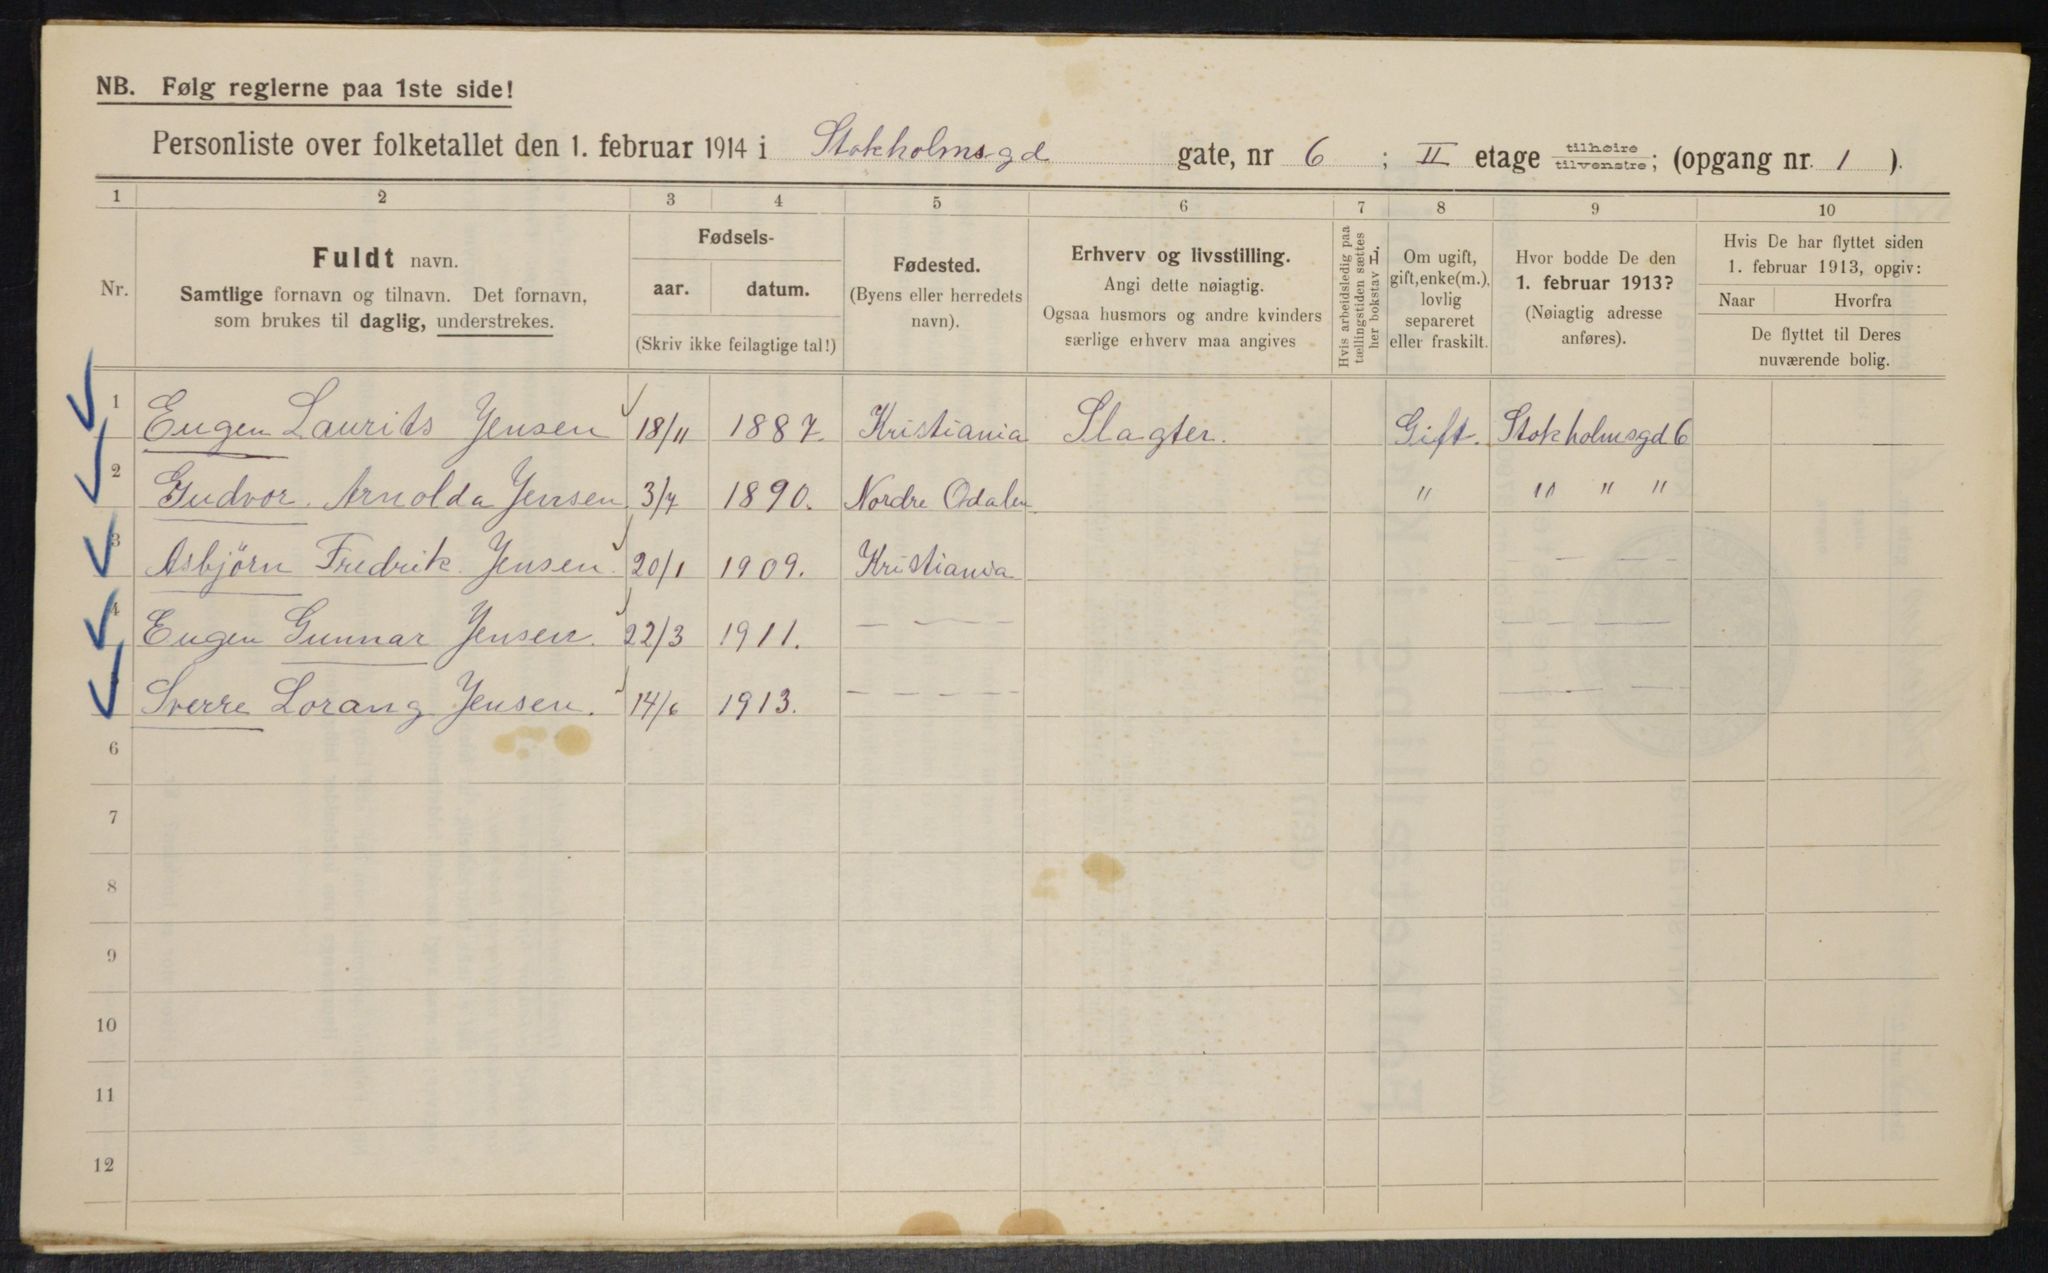 NB. Følg reglerne paa 1ste side!
Personliste over folketallet den 1. februar 1914 i Stokholmsgd gate, nr 6 ; II etage tilhøire tilvenstre; (opgang nr. 1 ).
1 2 3 4 5 6 7 8 9 10
Nr.
Fuldt navn.
Samtlige fornavn og tilnavn. Det fornavn,
som brukes til daglig, understrekes.
Fødsels-
aar. datum.
(Skriv ikke feilagtige tal!)
Fødested.
(Byens eller herredets
navn).
Erhverv og livsstilling.
Angi dette nøiagtig.
Ogsaa husmors og andre kvinders
særlige erhverv maa angives
Hvis arbeidsledig paa
tællingstiden sættes
her bokstav L.
Om ugift,
gift, enke(m.),
lovlig
separeret
eller fraskilt.
Hvor bodde De den
1. februar 1913?
(Nøiagtig adresse
anføres).
Hvis De har flyttet siden
1. februar 1913, opgiv:
Naar Hvorfra
De flyttet til Deres
nuværende bolig.
1 Eugen Laurits Jensen 18/11 1887. Kristiania Slagter. Gift. Stokholmsgd 6
2 Gudvor. Arnolda Jensen 3/7 1890. Nordre Odalen " " " "
3 Asbjörn Fredrik Jensen 20/1 1909. Kristiania — —
4 Eugen Gunnar Jensen. 22/3 1911. — — — — — —
Sverre Lorang Jensen. 14/6 1913. — — — — — —
6
7
8
9
10
11
12